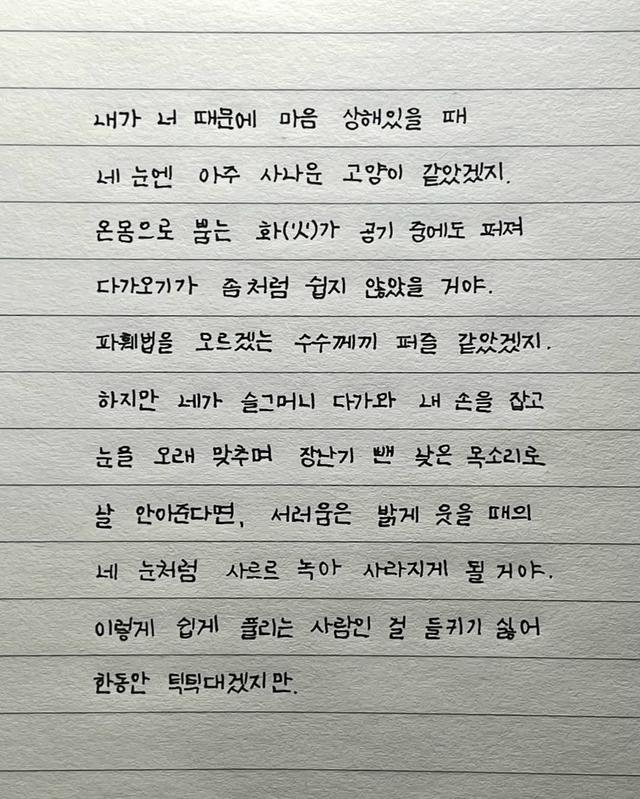 내가 너 때문에 마음 상해있을 때
네 눈엔 아주 사나운 고양이 같았겠지.
온몸으로 뿜는 화(火)가 공기 중에도 퍼져
다가오기가 좀처럼 쉽지 않았을 거야.
파훼법을 모르겠는 수수께끼 퍼즐 같았겠지.
하지만 네가 슬그머니 다가와 내 손을 잡고
눈을 오래 맞추며 장난기 뺀 낮은 목소리로
날 안아준다면, 서러움은 밝게 웃을 때의
네 눈처럼 사르르 녹아 사라지게 될 거야.
이렇게 쉽게 풀리는 사람인 걸 들키기 싫어
한동안 틱틱대겠지만.